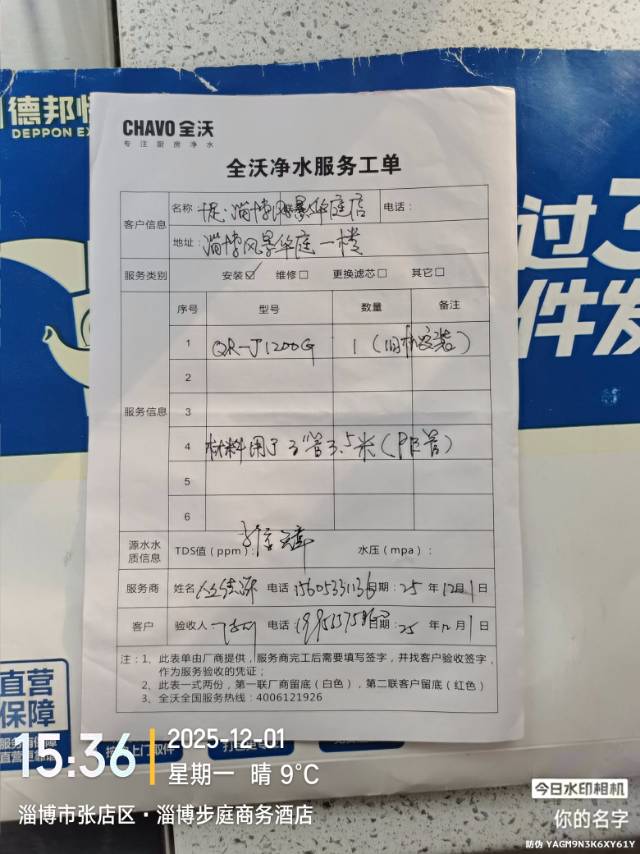 德邦快
DEPPON EX
CHAVO 全沃
专注厨房净水
全沃净水服务工单
客户信息
名称 淄博风景华庭店 电话：
地址： 淄博风景华庭一楼
服务类别 安装☑ 维修□ 更换滤芯□ 其它□
服务信息
序号 型号 数量 备注
1 QR-J1200G 1 （旧机安装）
2
3
4 材料用了3分管3.5米（PE管）
5
6
源水水质信息 TDS值（ppm）： 水压（mpa）：
服务商 姓名 电话 日期：25年12月1日
客户 验收人 电话 日期：25年12月1日
注：1、此表单由厂商提供，服务商完工后需要填写签字，并找客户验收签字，
作为服务验收的凭证；
2、此表一式两份，第一联厂商留底（白色），第二联客户留底（红色）
3、全沃全国服务热线：4006121926
过3
件发
直营
保障
15:36
2025-12-01
星期一 晴 9℃
淄博市张店区·淄博步庭商务酒店
今日水印相机
你的名字
防伪 YAGM9N3K6XY61Y